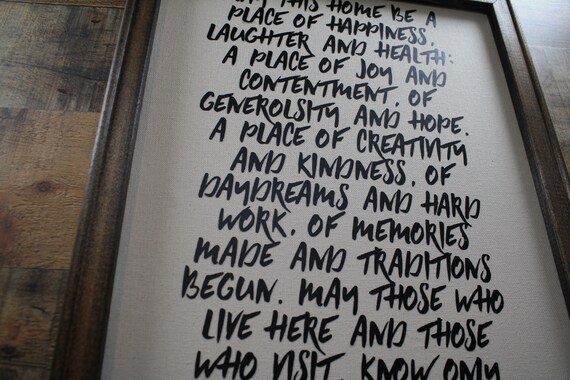 MAY THIS HOME BE A
PLACE OF HAPPINESS,
LAUGHTER AND HEALTH:
A PLACE OF JOY AND
CONTENTMENT, OF
GENEROLSITY AND HOPE.
A PLACE OF CREATIVITY
AND KINDNESS, OF
DAYDREAMS AND HARD
WORK, OF MEMORIES
MADE AND TRADITIONS
BEGUN. MAY THOSE WHO
LIVE HERE AND THOSE
WHO VISIT, KNOW ONLY